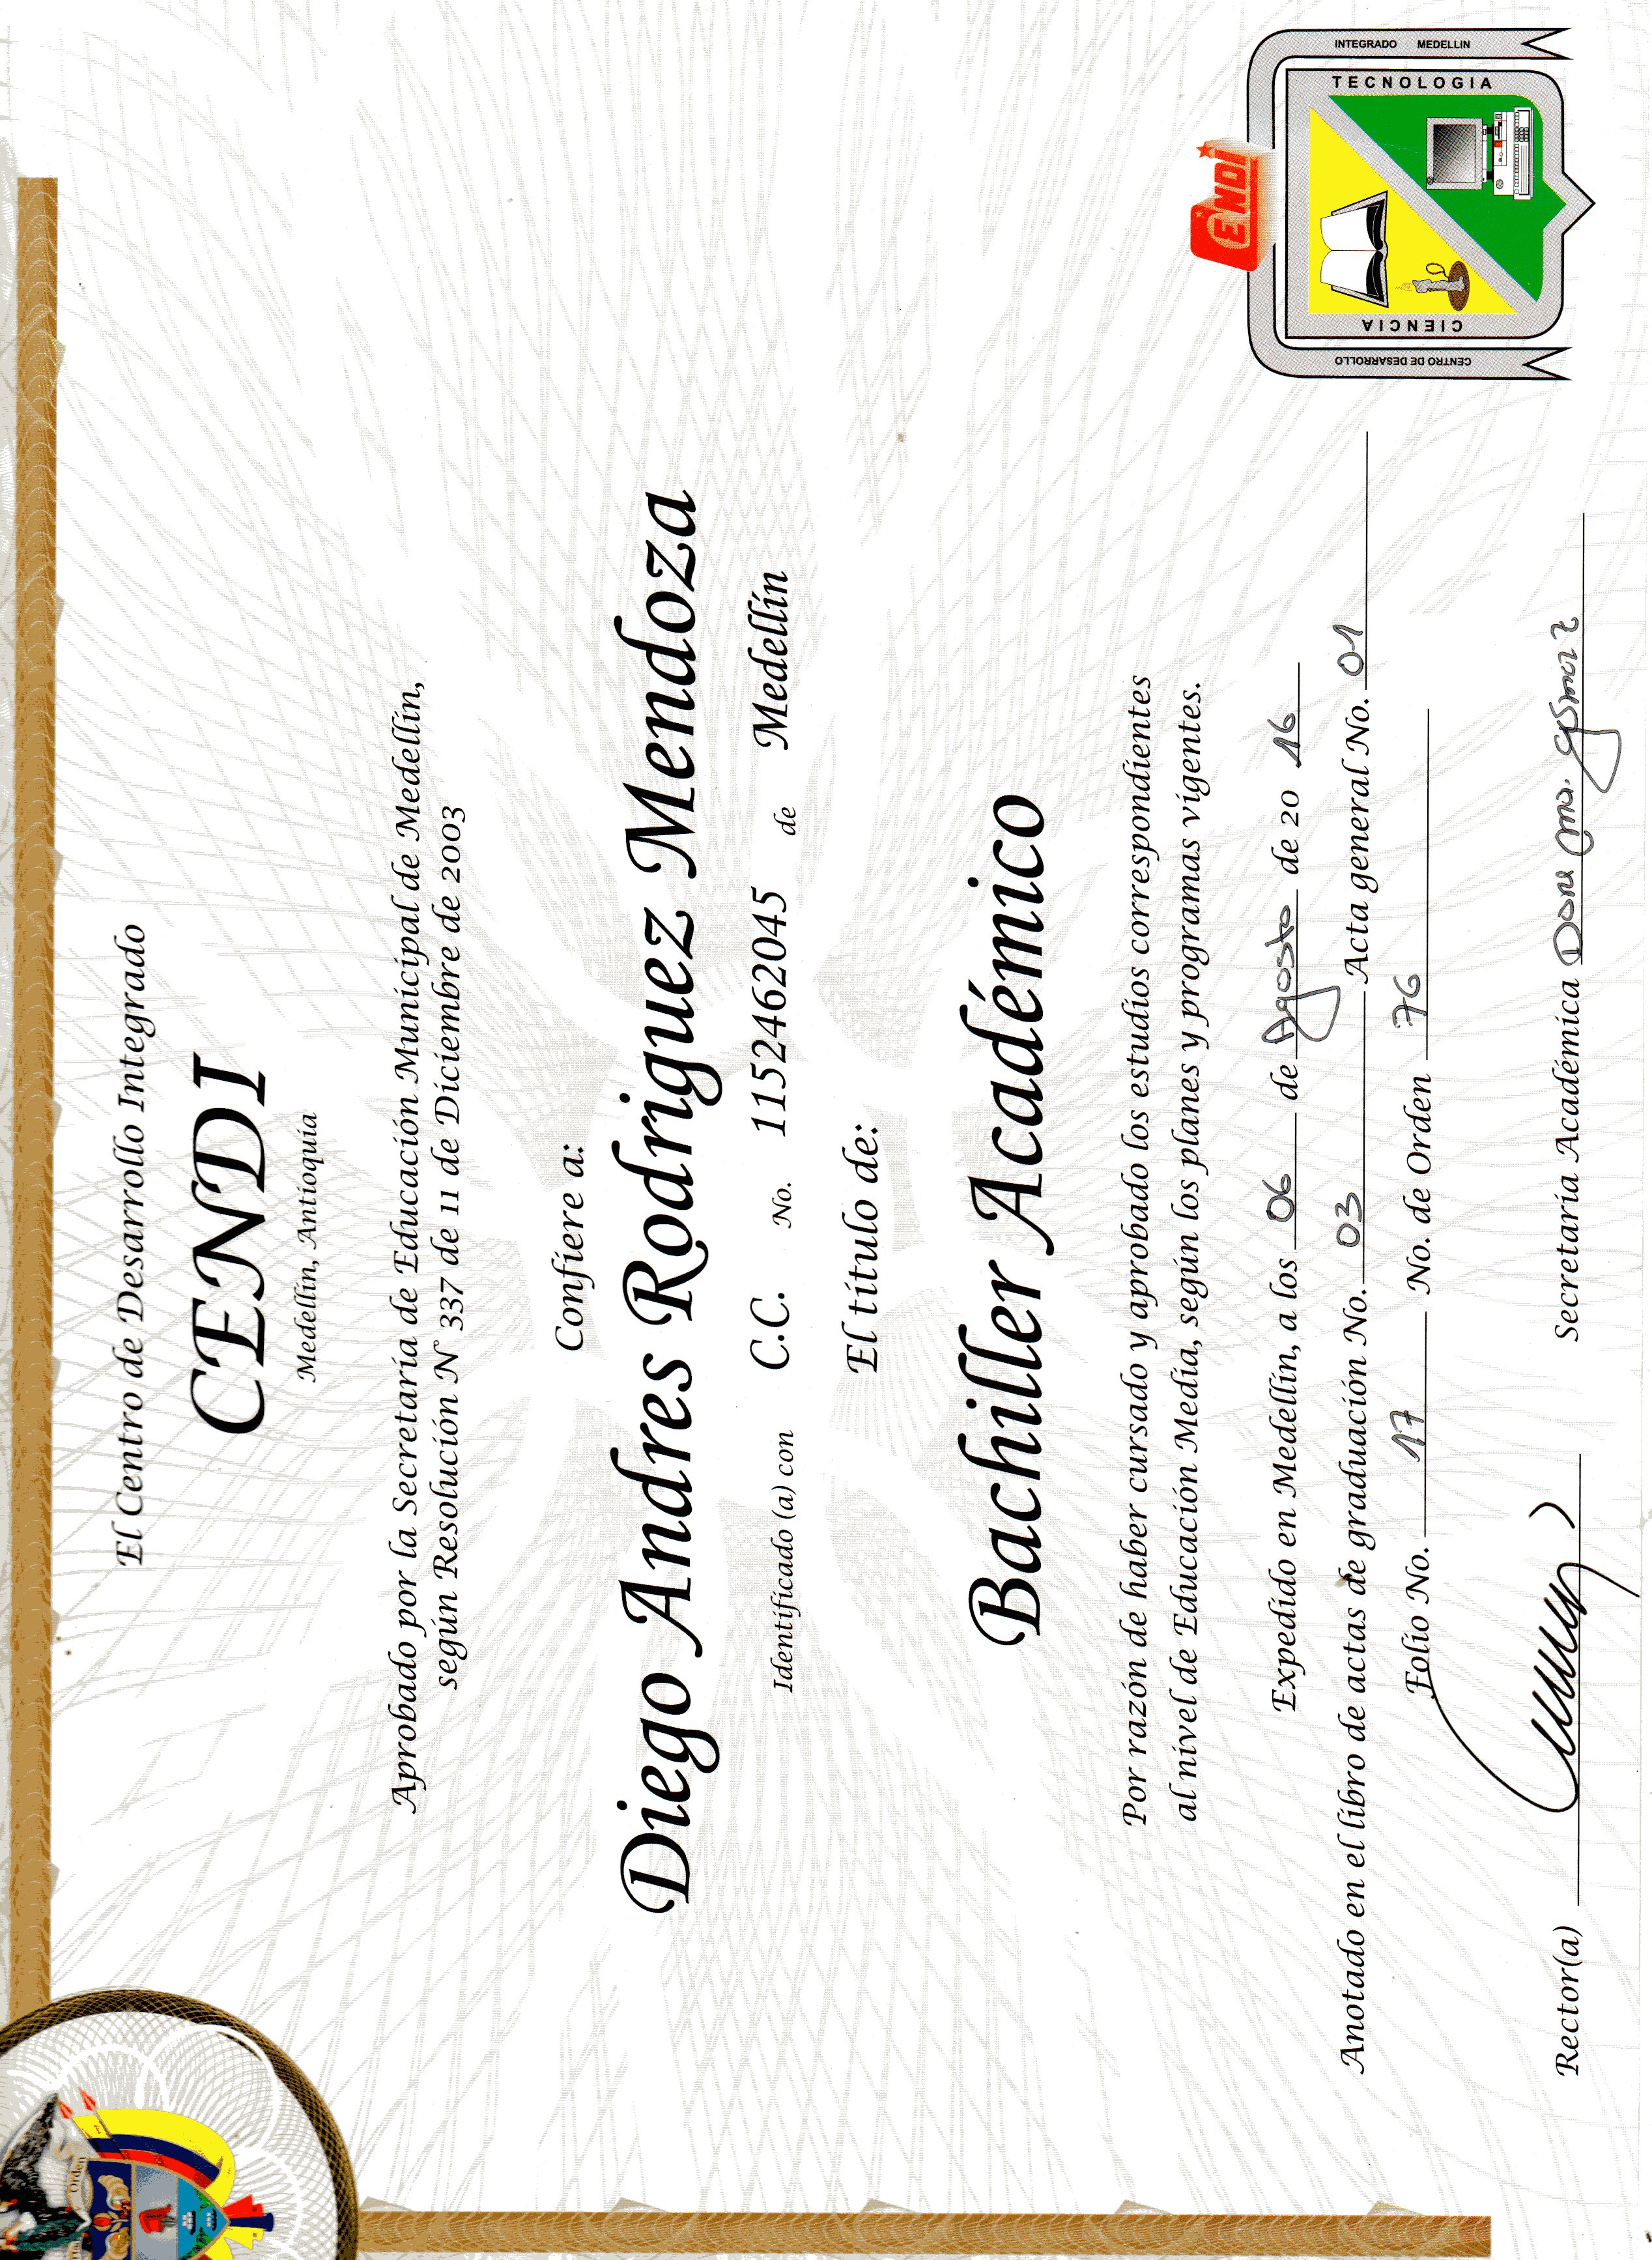 Orden
El Centro de Desarrollo Integrado
CENDI
Medellín, Antioquia
Aprobado por la Secretaría de Educación Municipal de Medellín,
según Resolución N° 337 de 11 de Diciembre de 2003
Confiere a:
Diego Andres Rodriguez Mendoza
Identificado (a) con C.C. No. 1152462045 de Medellín
El título de:
Bachiller Académico
Por razón de haber cursado y aprobado los estudios correspondientes
al nivel de Educación Media, según los planes y programas vigentes.
Expedido en Medellín, a los 06 de Agosto de 20 16
Anotado en el libro de actas de graduación No. 03 Acta general No. 01
Folio No. 17 No. de Orden 76
Rector(a)
Secretaria Académica
CENDI
CENTRO DE DESARROLLO
CIENCIA
TECNOLOGIA
INTEGRADO MEDELLIN